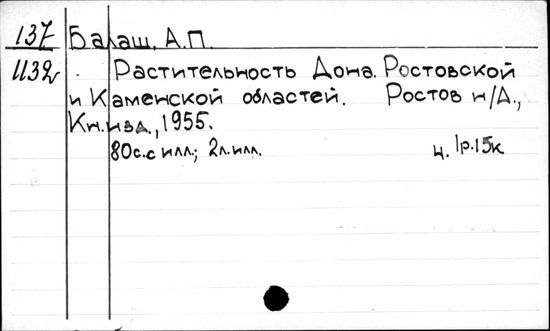 137 Балаш, А.П.
1132 Растительность Дона. Ростовской
и Каменской областей. Ростов н/Д.,
Кн.изд., 1955.
80с.с илл.; 2л.илл. ц. 1р.15к